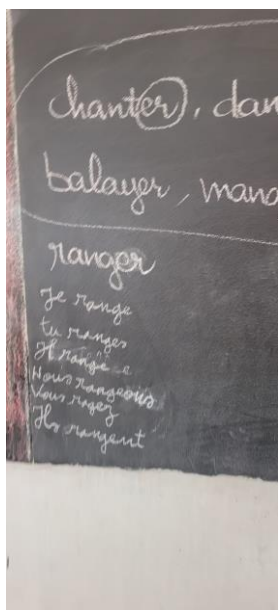 chanter, dan
balayer, mang
ranger
Je range
tu ranges
Il range
Nous rangeons
Vous ragez
Ils rangent